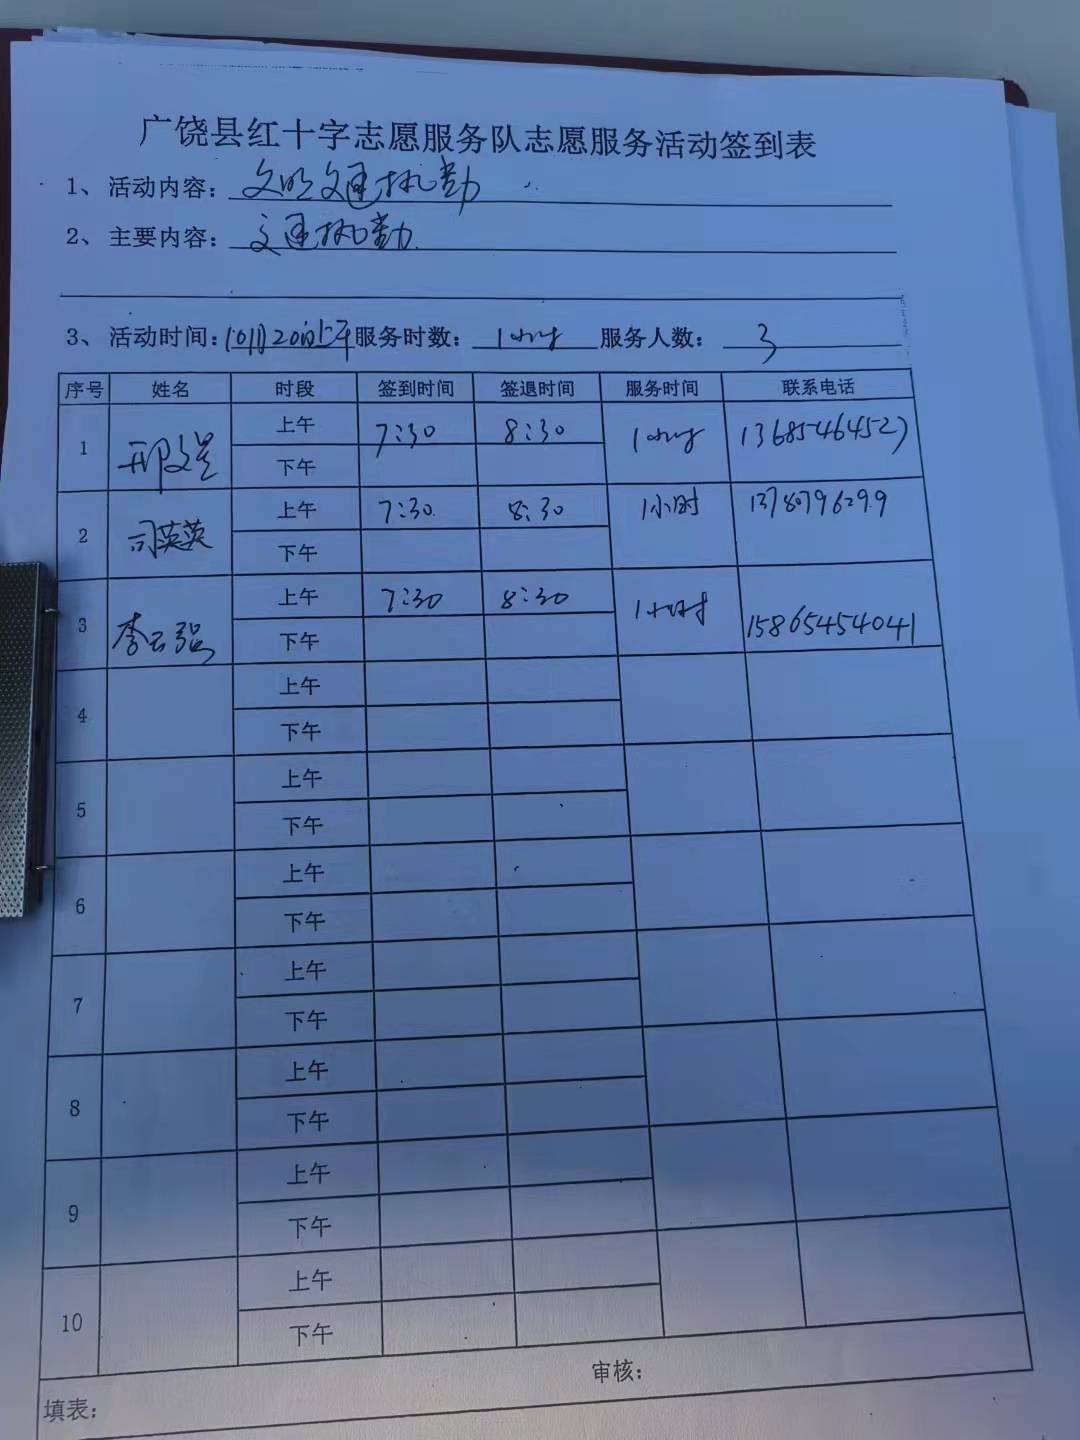 广饶县红十字志愿服务队志愿服务活动签到表
1、活动内容：文明交通执勤
2、主要内容：交通执勤
3、活动时间：10月20日上午 服务时数：1小时 服务人数：3
序号 姓名 时段 签到时间 签退时间 服务时间 联系电话
1 邢文星 上午 7:30 8:30 1小时 13685464527
下午
2 司英英 上午 7:30 8:30 1小时 13780796299
下午
3 李云强 上午 7:30 8:30 1小时 15865454041
下午
4 上午
下午
5 上午
下午
6 上午
下午
7 上午
下午
8 上午
下午
9 上午
下午
10 上午
下午
填表： 审核：